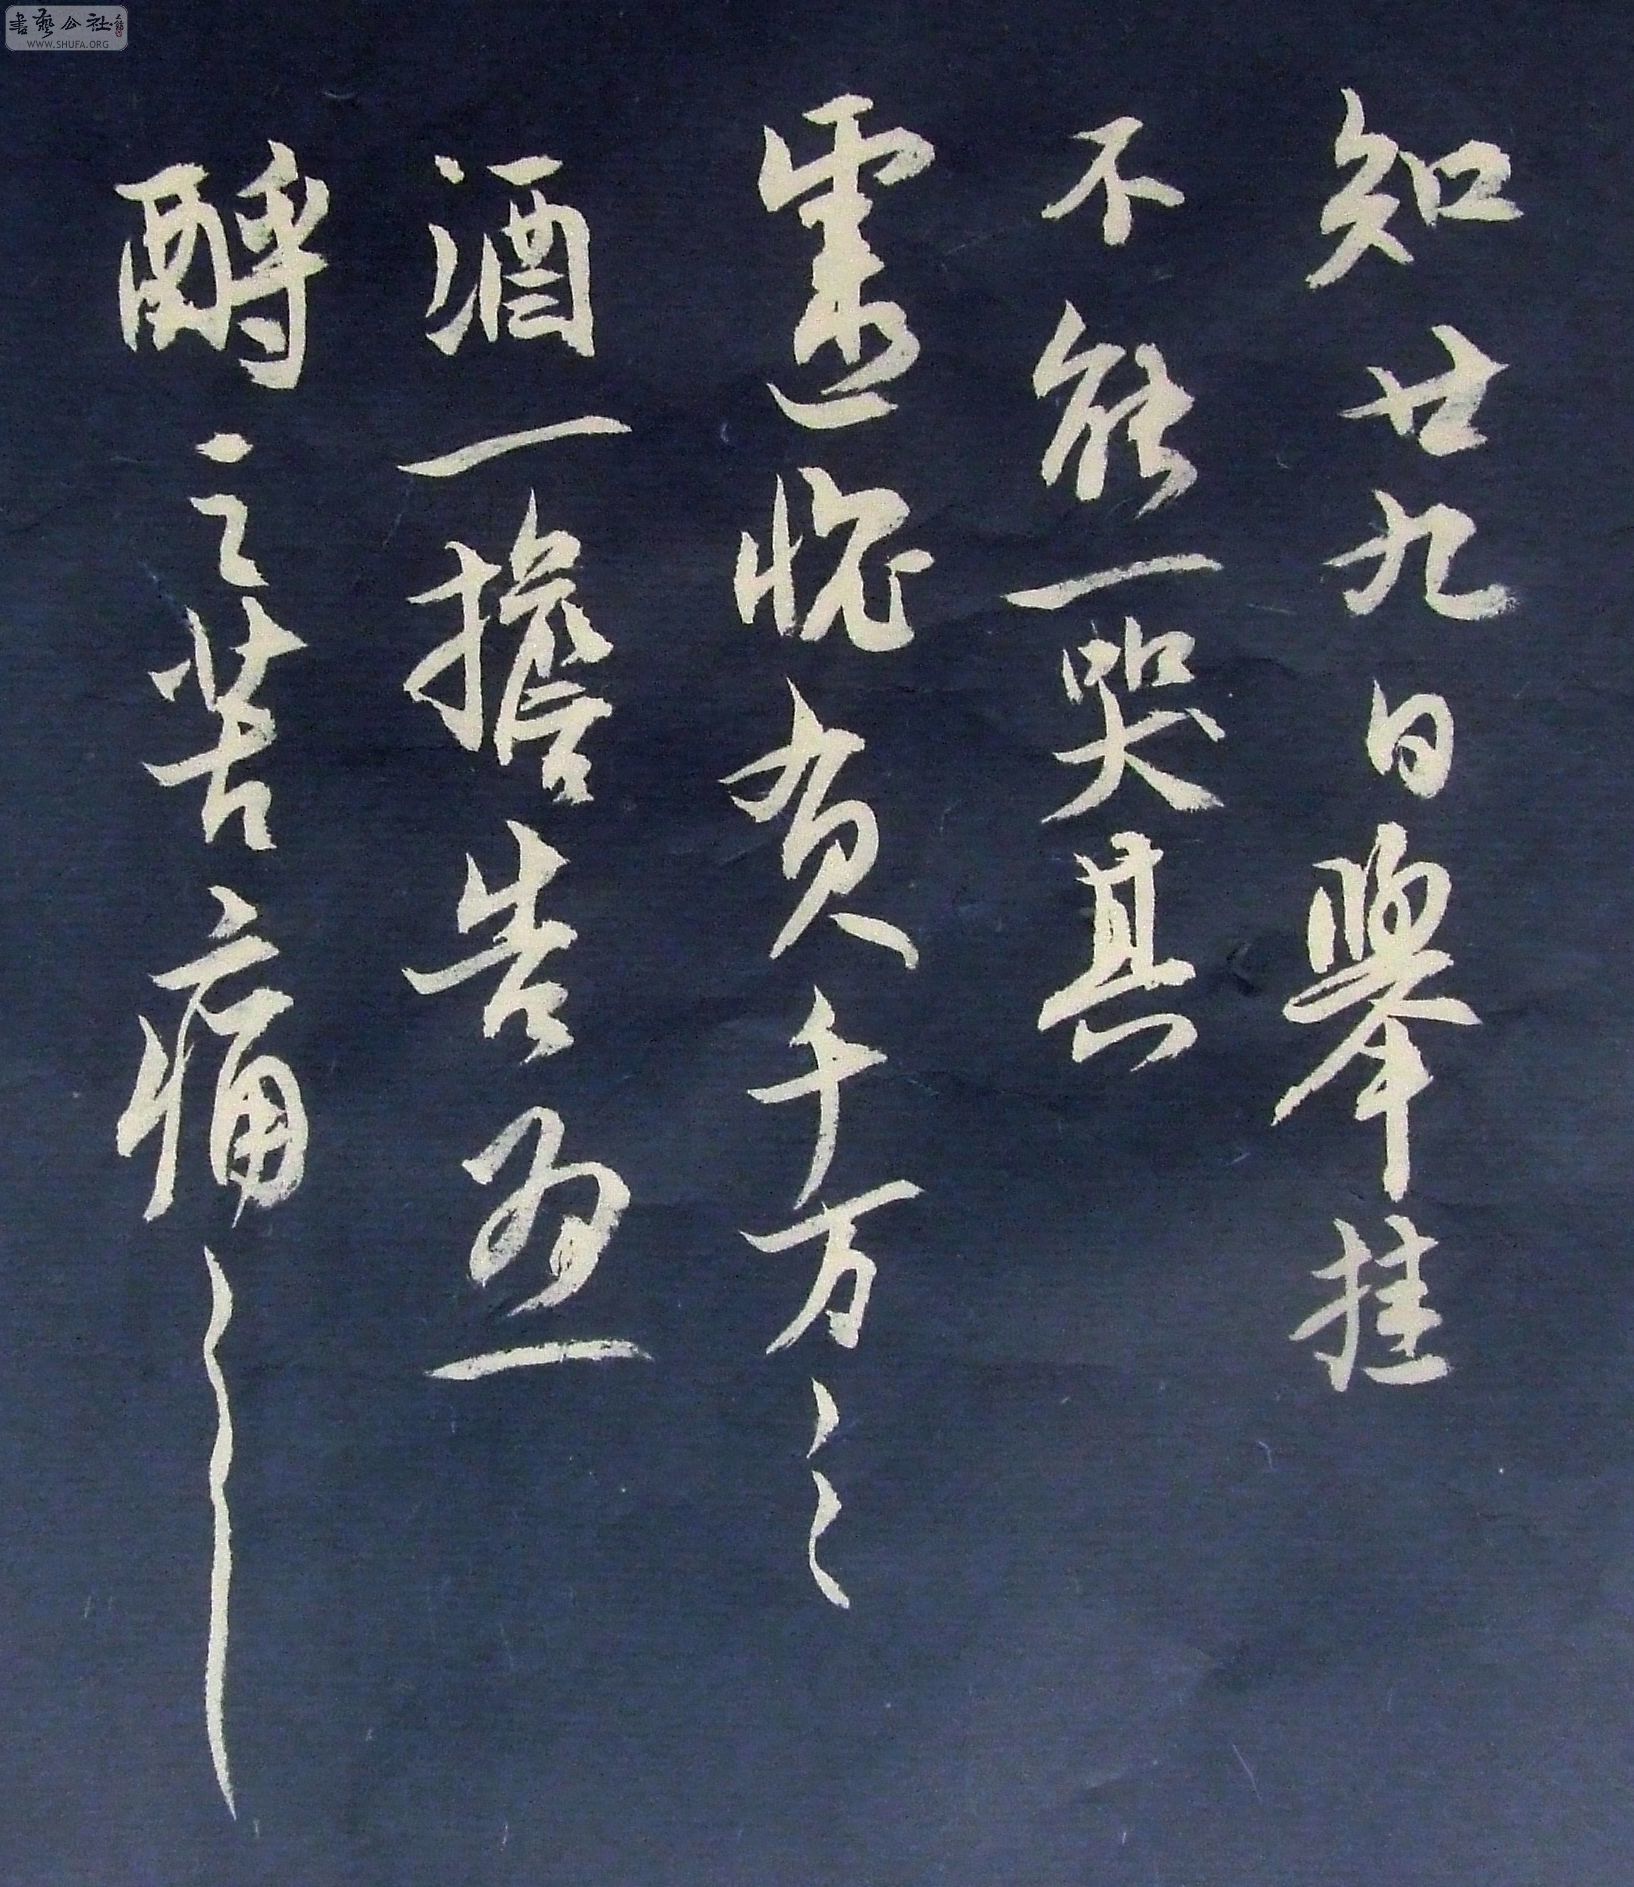 書藝公社
WWW.SHUFA.ORG
知廿九日舉挂
不能一哭其
靈愧負千万々々
酒一擔告為一
酹之苦痛